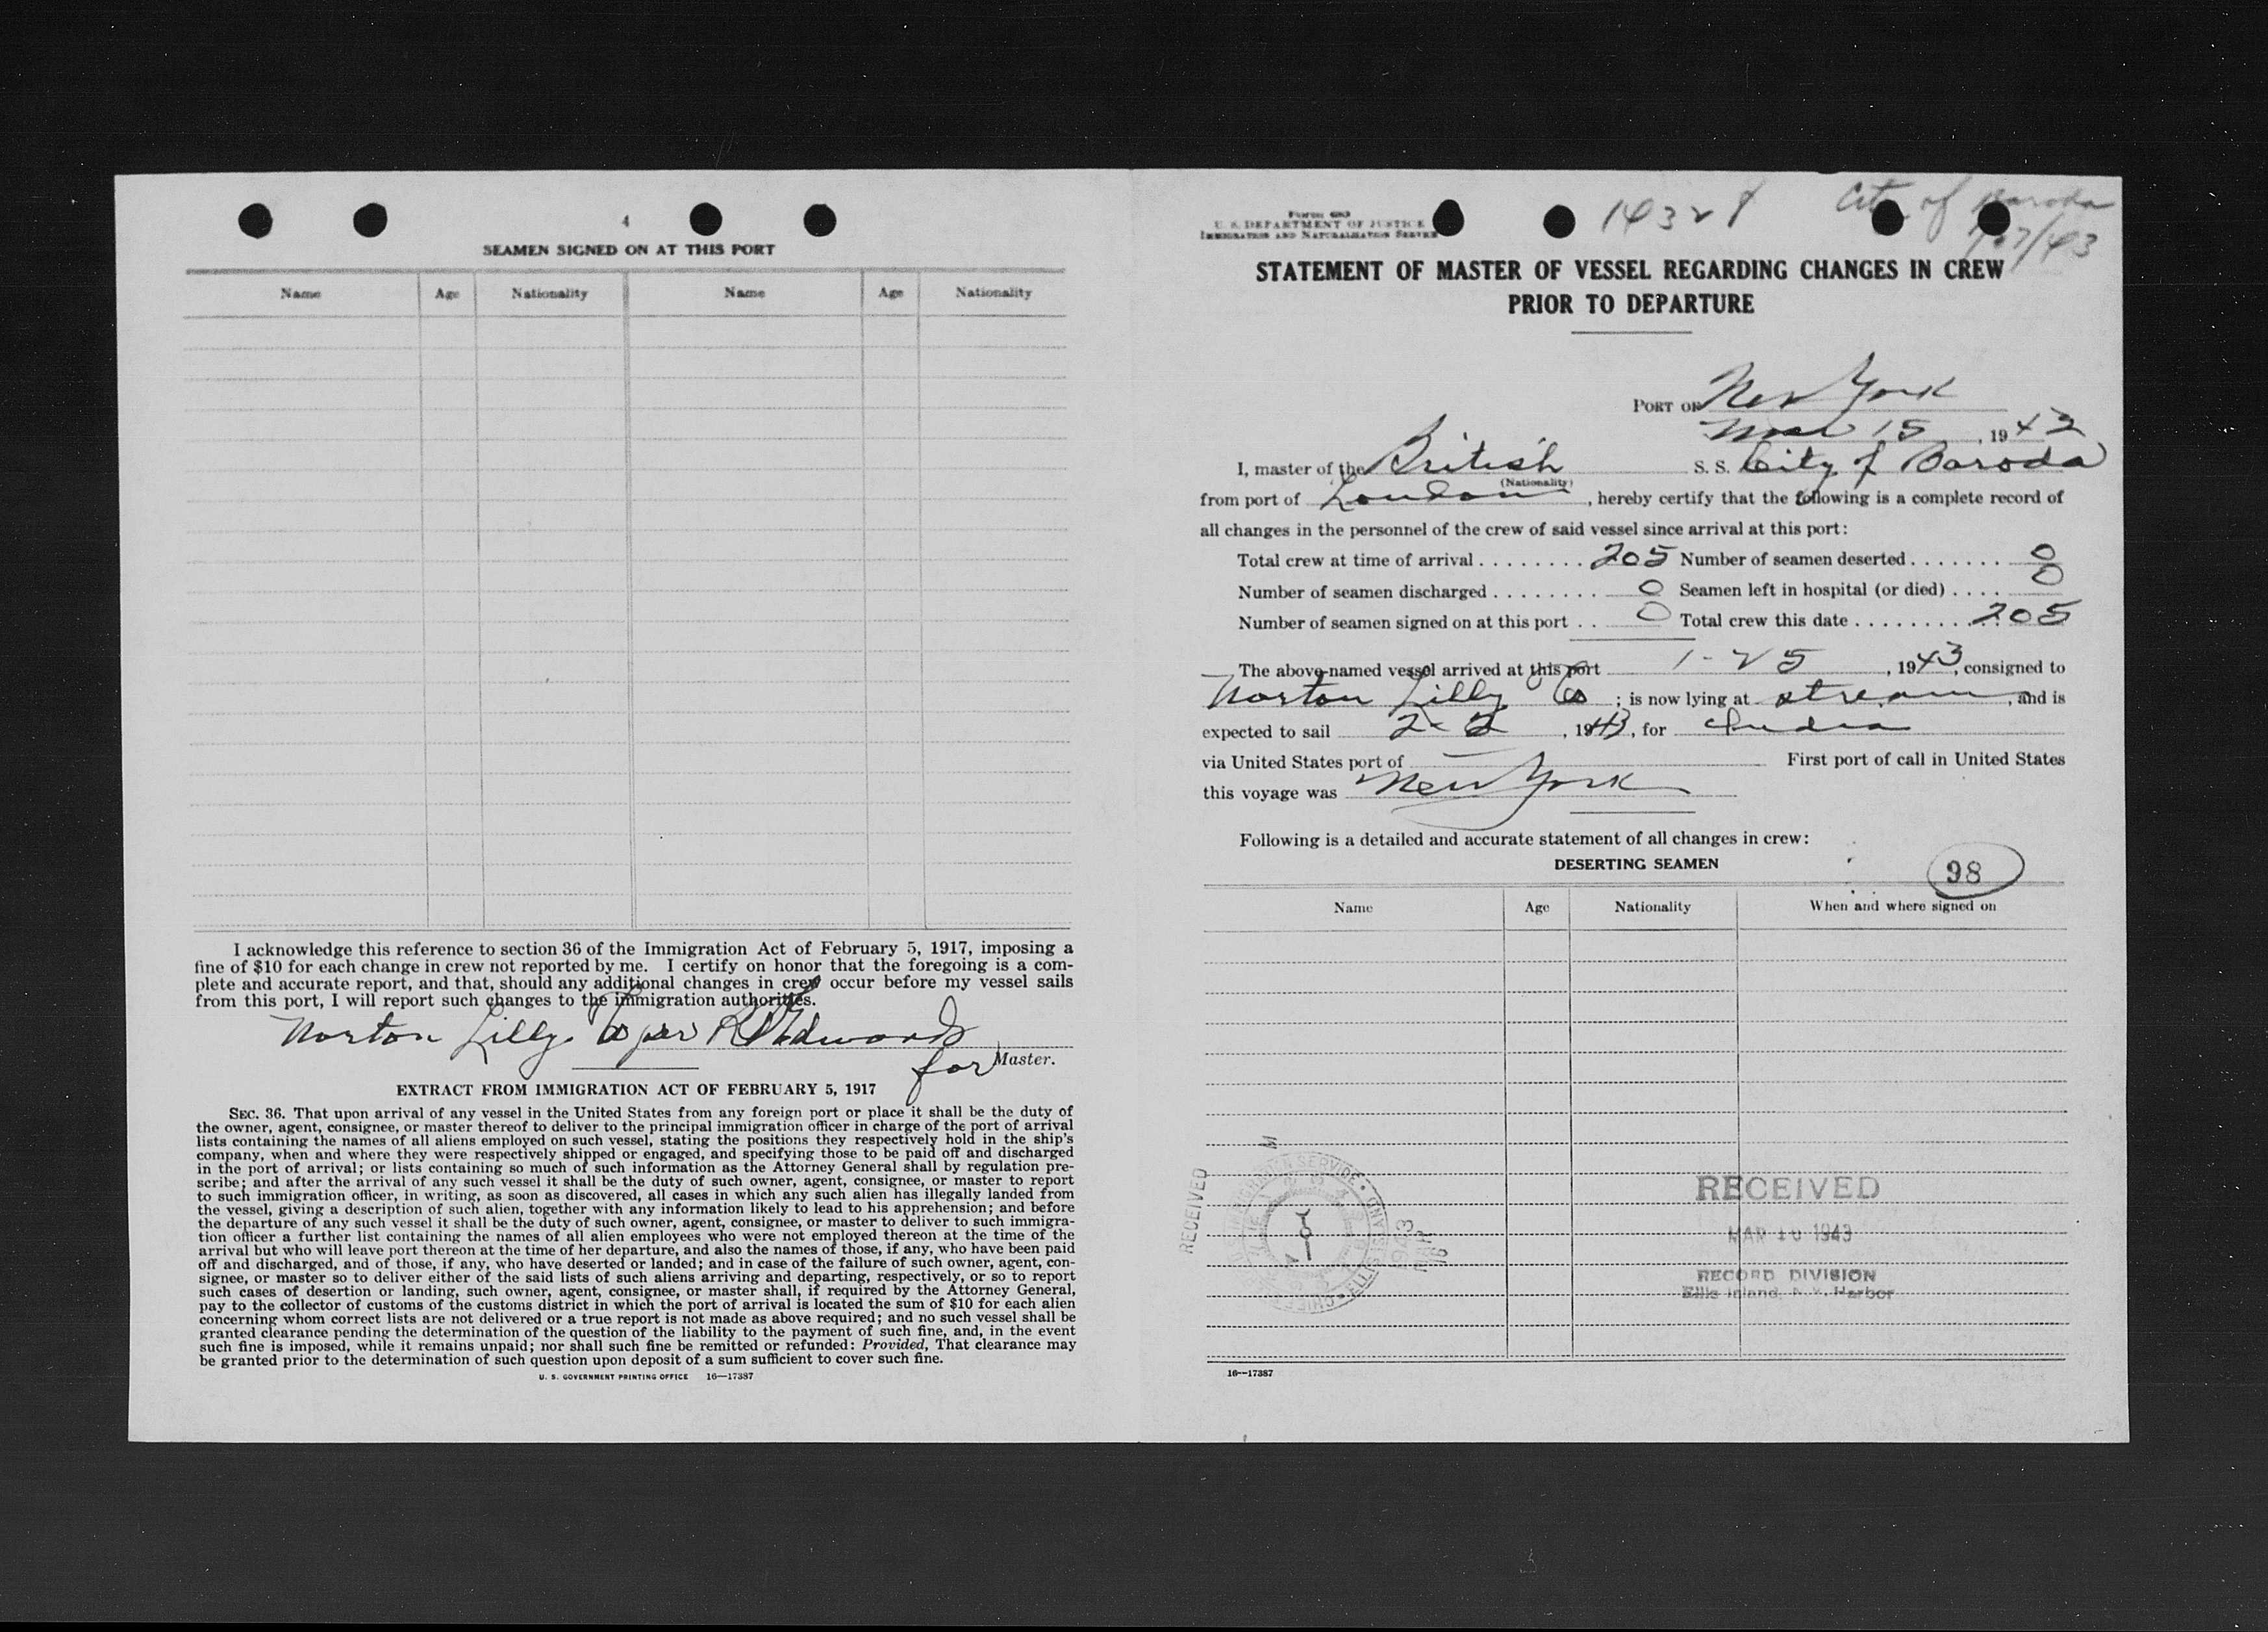 4
SEAMEN SIGNED ON AT THIS PORT
Name Age Nationality Name Age Nationality
I acknowledge this reference to section 36 of the Immigration Act of February 5, 1917, imposing a
fine of $10 for each change in crew not reported by me. I certify on honor that the foregoing is a com-
plete and accurate report, and that, should any additional changes in crew occur before my vessel sails
from this port, I will report such changes to the immigration authorities.
Norton Lilly Co per Edwards
for Master.
EXTRACT FROM IMMIGRATION ACT OF FEBRUARY 5, 1917
SEC. 36. That upon arrival of any vessel in the United States from any foreign port or place it shall be the duty of
the owner, agent, consignee, or master thereof to deliver to the principal immigration officer in charge of the port of arrival
lists containing the names of all aliens employed on such vessel, stating the positions they respectively hold in the ship's
company, when and where they were respectively shipped or engaged, and specifying those to be paid off and discharged
in the port of arrival; or lists containing so much of such information as the Attorney General shall by regulation pre-
scribe; and after the arrival of any such vessel it shall be the duty of such owner, agent, consignee, or master to report
to such immigration officer, in writing, as soon as discovered, all cases in which any such alien has illegally landed from
the vessel, giving a description of such alien, together with any information likely to lead to his apprehension; and before
the departure of any such vessel it shall be the duty of such owner, agent, consignee, or master to deliver to such immigra-
tion officer a further list containing the names of all alien employees who were not employed thereon at the time of the
arrival but who will leave port thereon at the time of her departure, and also the names of those, if any, who have been paid
off and discharged, and of those, if any, who have deserted or landed; and in case of the failure of such owner, agent, con-
signee, or master so to deliver either of the said lists of such aliens arriving and departing, respectively, or so to report
such cases of desertion or landing, such owner, agent, consignee, or master shall, if required by the Attorney General,
pay to the collector of customs of the customs district in which the port of arrival is located the sum of $10 for each alien
concerning whom correct lists are not delivered or a true report is not made as above required; and no such vessel shall be
granted clearance pending the determination of the question of the liability to the payment of such fine, and, in the event
such fine is imposed, while it remains unpaid; nor shall such fine be remitted or refunded: Provided, That clearance may
be granted prior to the determination of such question upon deposit of a sum sufficient to cover such fine.
U. S. GOVERNMENT PRINTING OFFICE 16—17387
Form 689
U. S. DEPARTMENT OF JUSTICE
IMMIGRATION AND NATURALIZATION SERVICE
City of Baroda
STATEMENT OF MASTER OF VESSEL REGARDING CHANGES IN CREW
PRIOR TO DEPARTURE
PORT OF New York
15, 1943
I, master of the British S. S. City of Baroda
(Nationality)
from port of London, hereby certify that the following is a complete record of
all changes in the personnel of the crew of said vessel since arrival at this port:
Total crew at time of arrival ........ 205 Number of seamen deserted ....... 0
Number of seamen discharged ........ 0 Seamen left in hospital (or died) .... 0
Number of seamen signed on at this port .. 0 Total crew this date .......... 205
The above-named vessel arrived at this port 1-25, 1943, consigned to
Norton Lilly Co; is now lying at stream, and is
expected to sail 2-2, 1943, for India
via United States port of — First port of call in United States
this voyage was New York
Following is a detailed and accurate statement of all changes in crew:
DESERTING SEAMEN
98
Name Age Nationality When and where signed on
RECEIVED
RECEIVED
MAR 16 1943
RECORD DIVISION
Ellis Island, N.Y. Harbor
16—17387